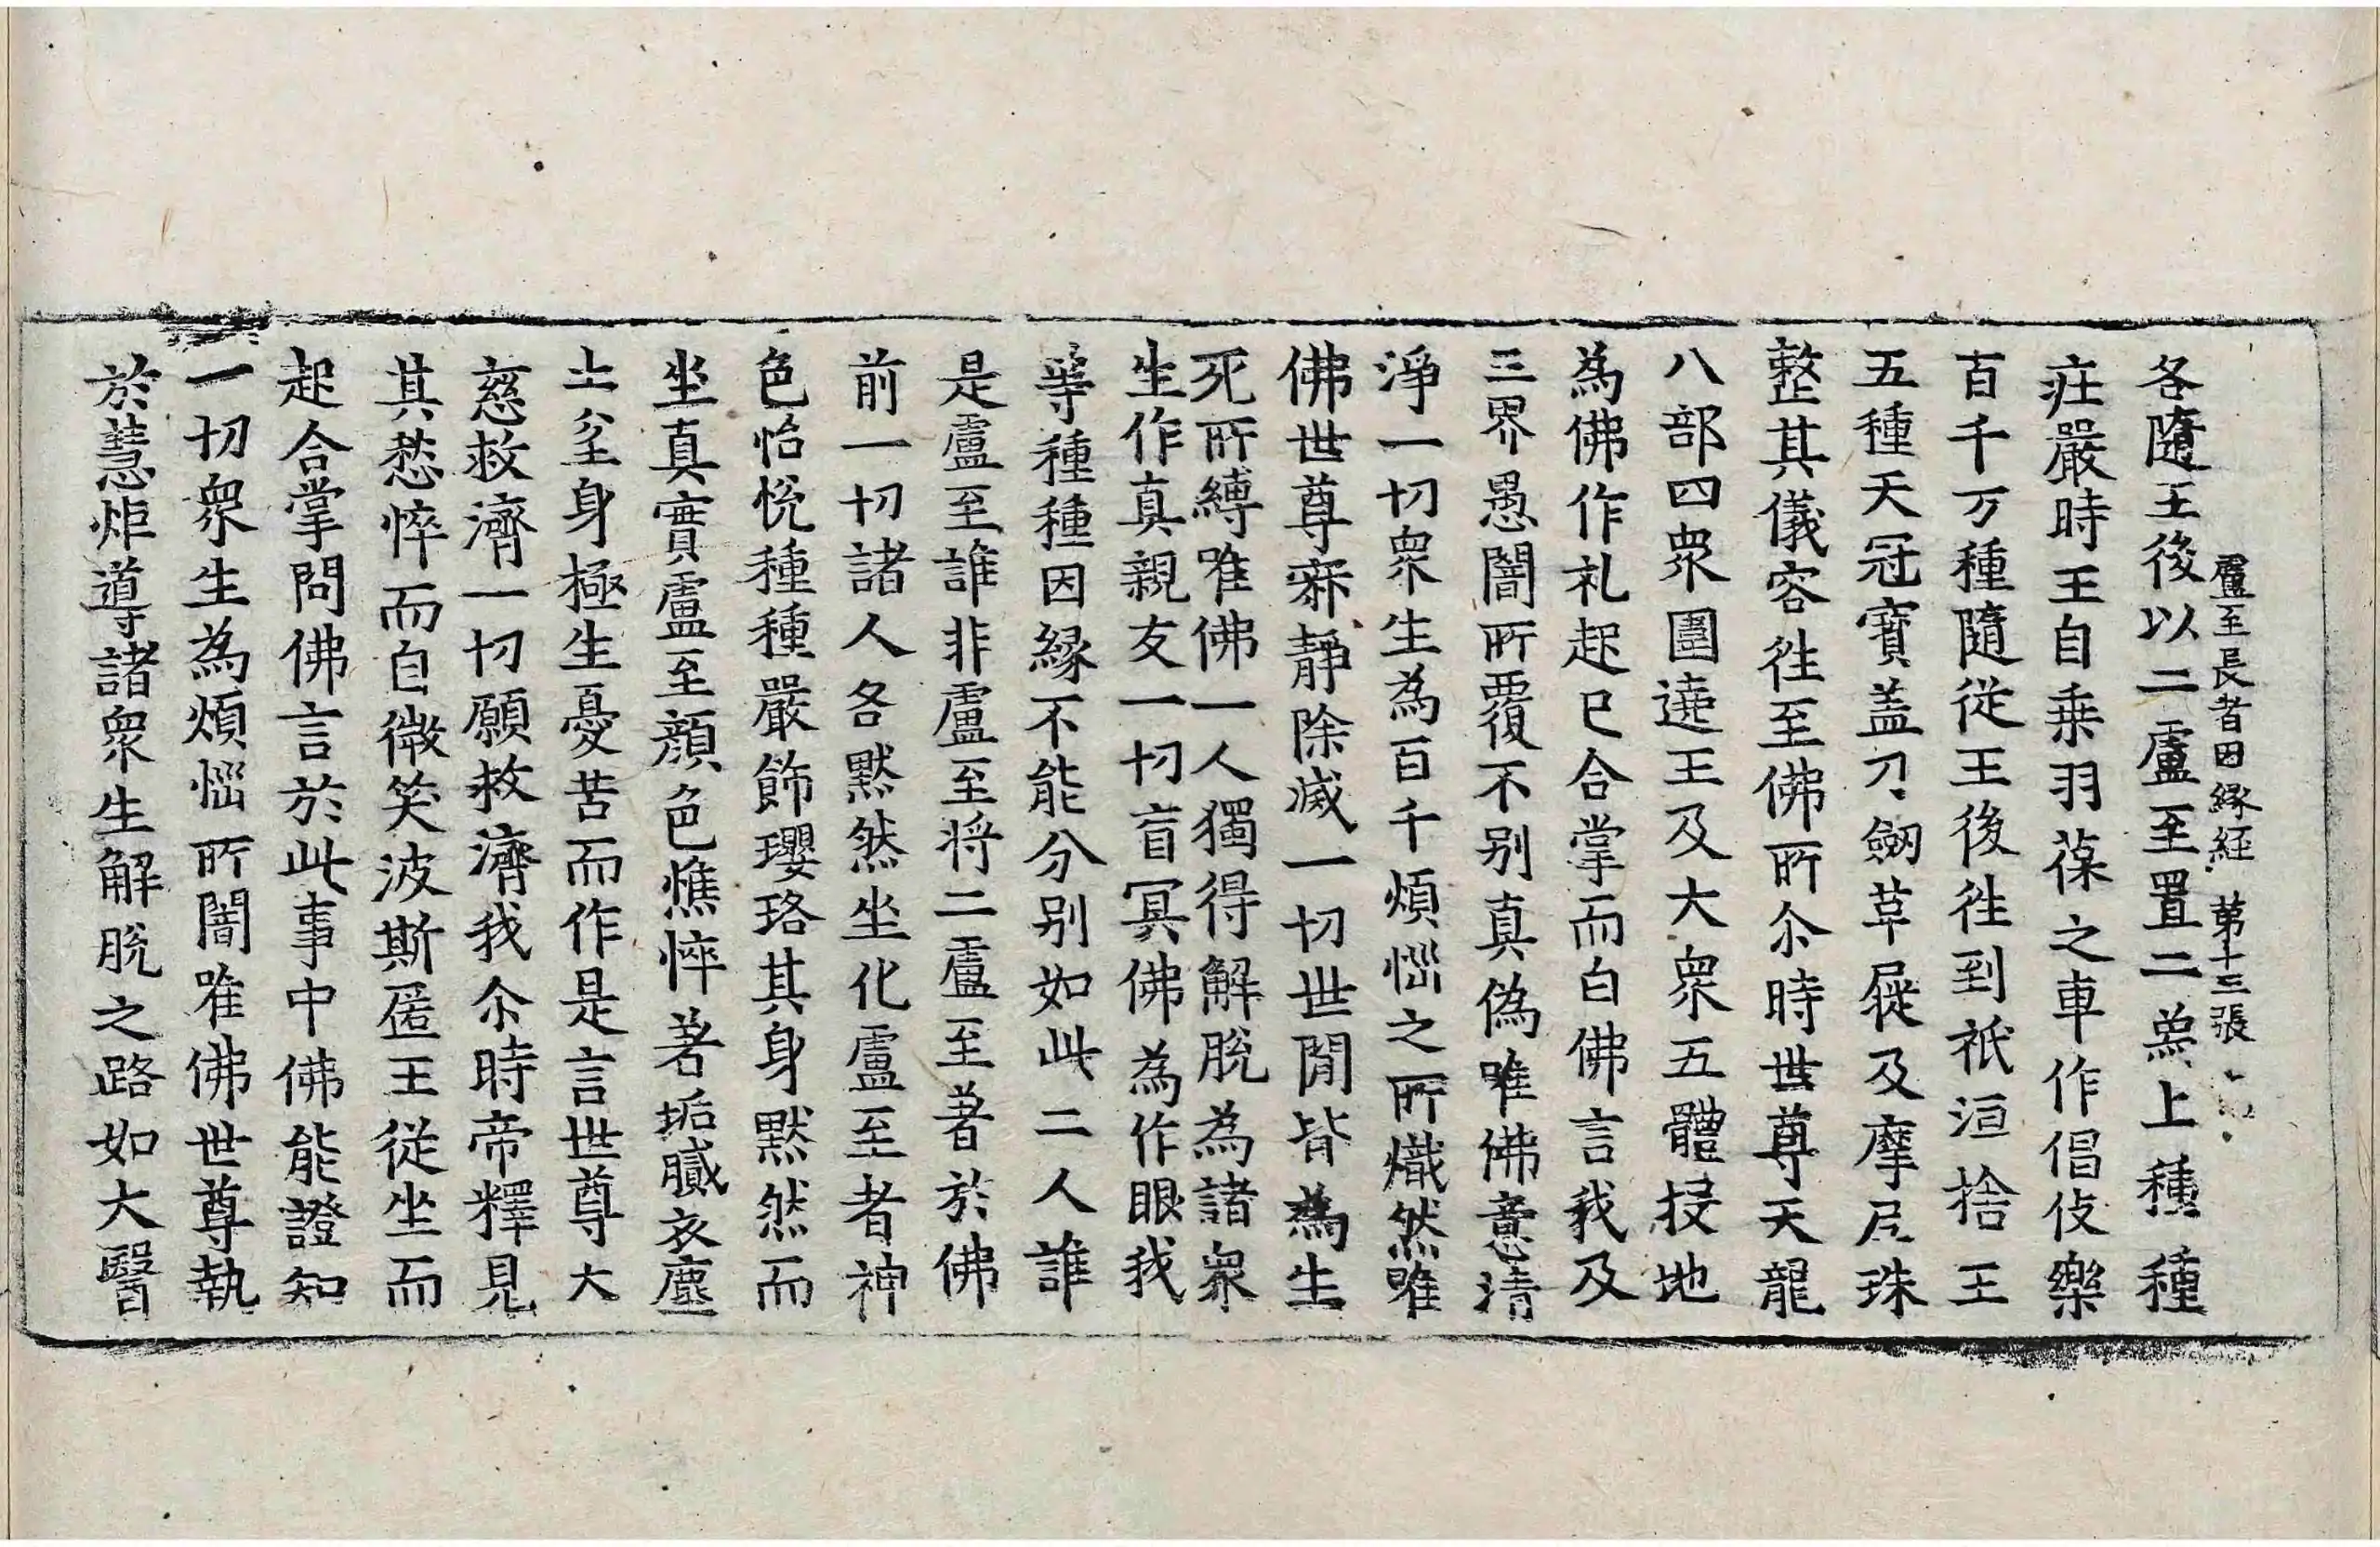 盧至長者因縁経 第十三張
各隨王後以二盧至置二烏上種種
莊嚴時王自乗羽葆之車作倡伎樂
百千万種隨從王後徃到祇洹捨王
五種天冠寳盖刀劒草屣及摩尼珠
整其儀容徃至佛所尒時世尊天龍
八部四衆圍遶王及大衆五體投地
為佛作礼起已合掌而白佛言我及
三界愚闇所覆不别真偽唯佛意清
淨一切衆生為百千煩惱之所熾然唯
佛世尊寂靜除滅一切世間皆為生
死所縛唯佛一人獨得解脫為諸衆
生作真親友一切盲冥佛為作眼我
等種種因縁不能分别如此二人誰
是盧至誰非盧至将二盧至著於佛
前一切諸人各默然坐化盧至者神
色怡悅種種嚴飾瓔珞其身默然而
坐真實盧至顔色憔悴著垢膩衣塵
土坌身極生憂苦而作是言世尊大
慈救濟一切願救濟我尒時帝釋見
其愁悴而自微笑波斯匿王從坐而
起合掌問佛言於此事中佛能證知
一切衆生為煩惱所闇唯佛世尊執
於慧炬導諸衆生解脫之路如大醫